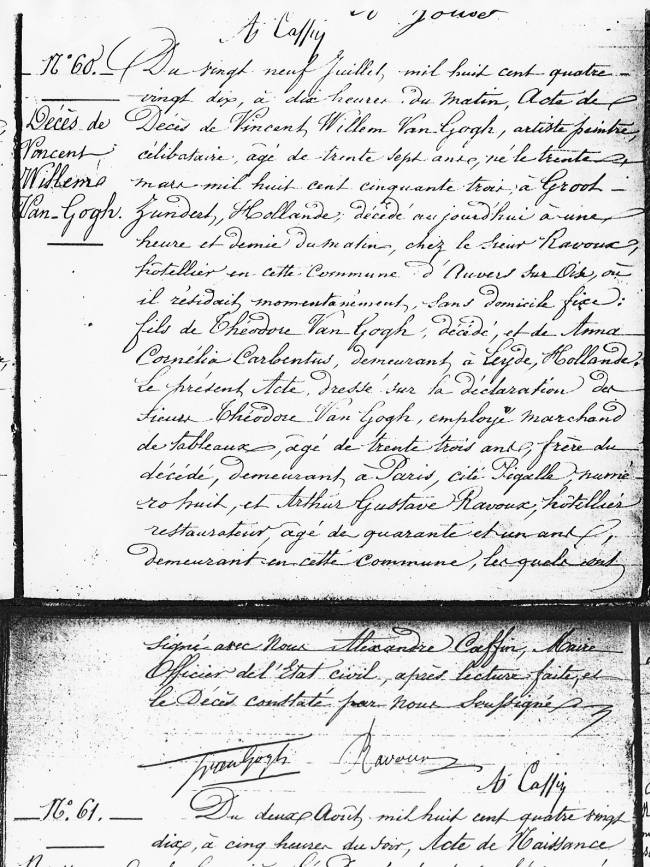 A Caffin
N° 60.
Décès de
Vincent
Willem
Van-Gogh.
Du vingt neuf Juillet, mil huit cent quatre
vingt dix, à dix heures du matin, Acte de
Décès de Vincent Willem Van Gogh, artiste peintre,
célibataire, âgé de trente sept ans, né le trente
mars mil huit cent cinquante trois, à Groot-
Zundert, Hollande; décédé aujourd'hui à une
heure et demie du matin, chez le Sieur Ravoux,
hôtellier en cette Commune d'Auvers sur Oise, où
il résidait momentanément, sans domicile fixe:
fils de Théodore Van Gogh, décédé, et de Anna
Cornélia Carbentus, demeurant à Leyde, Hollande.
Le présent Acte dressé sur la déclaration des
Sieurs Théodore Van Gogh, employé marchand
de tableaux, âgé de trente trois ans, frère du
décédé, demeurant à Paris, cité Pigalle, numé-
ro huit, et Arthur Gustave Ravoux, hôtellier
restaurateur, âgé de quarante et un ans,
demeurant en cette commune, lesquels ont
signé avec Nous Alexandre Caffin, Maire
Officier de l'Etat civil, après lecture faite, et
le Décès constaté par nous Soussigné
van Gogh Ravoux
A Caffin
N° 61.
Du deux Août, mil huit cent quatre vingt
dix, à cinq heures du soir, Acte de Naissance